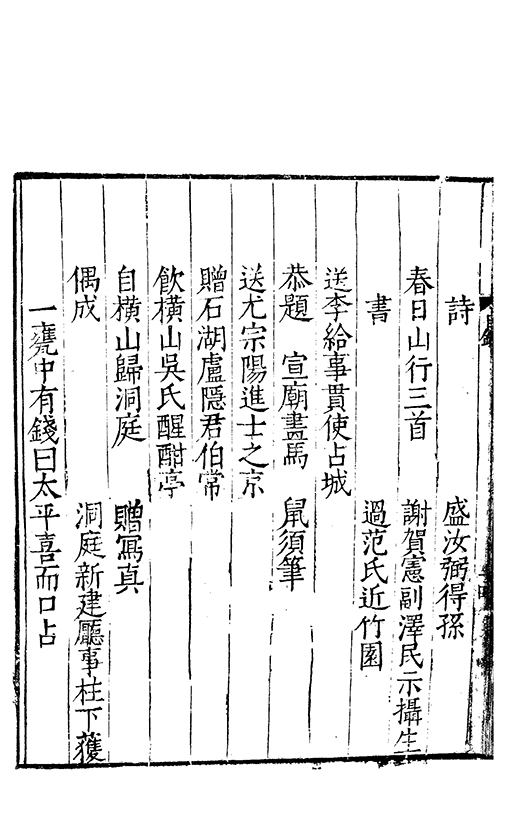 詩　盛汝弼得孫
春日山行三首　謝賀憲副澤民示攝生
書　過范氏近竹園
送李給事貫使占城
恭題　宣廟畫馬　鼠須筆
送尤宗陽進士之京
贈石湖盧隱君伯常
飲橫山吳氏醒酣亭
自橫山歸洞庭　贈寫真
偶成　洞庭新建廳事柱下獲
一甕中有錢曰太平喜而口占